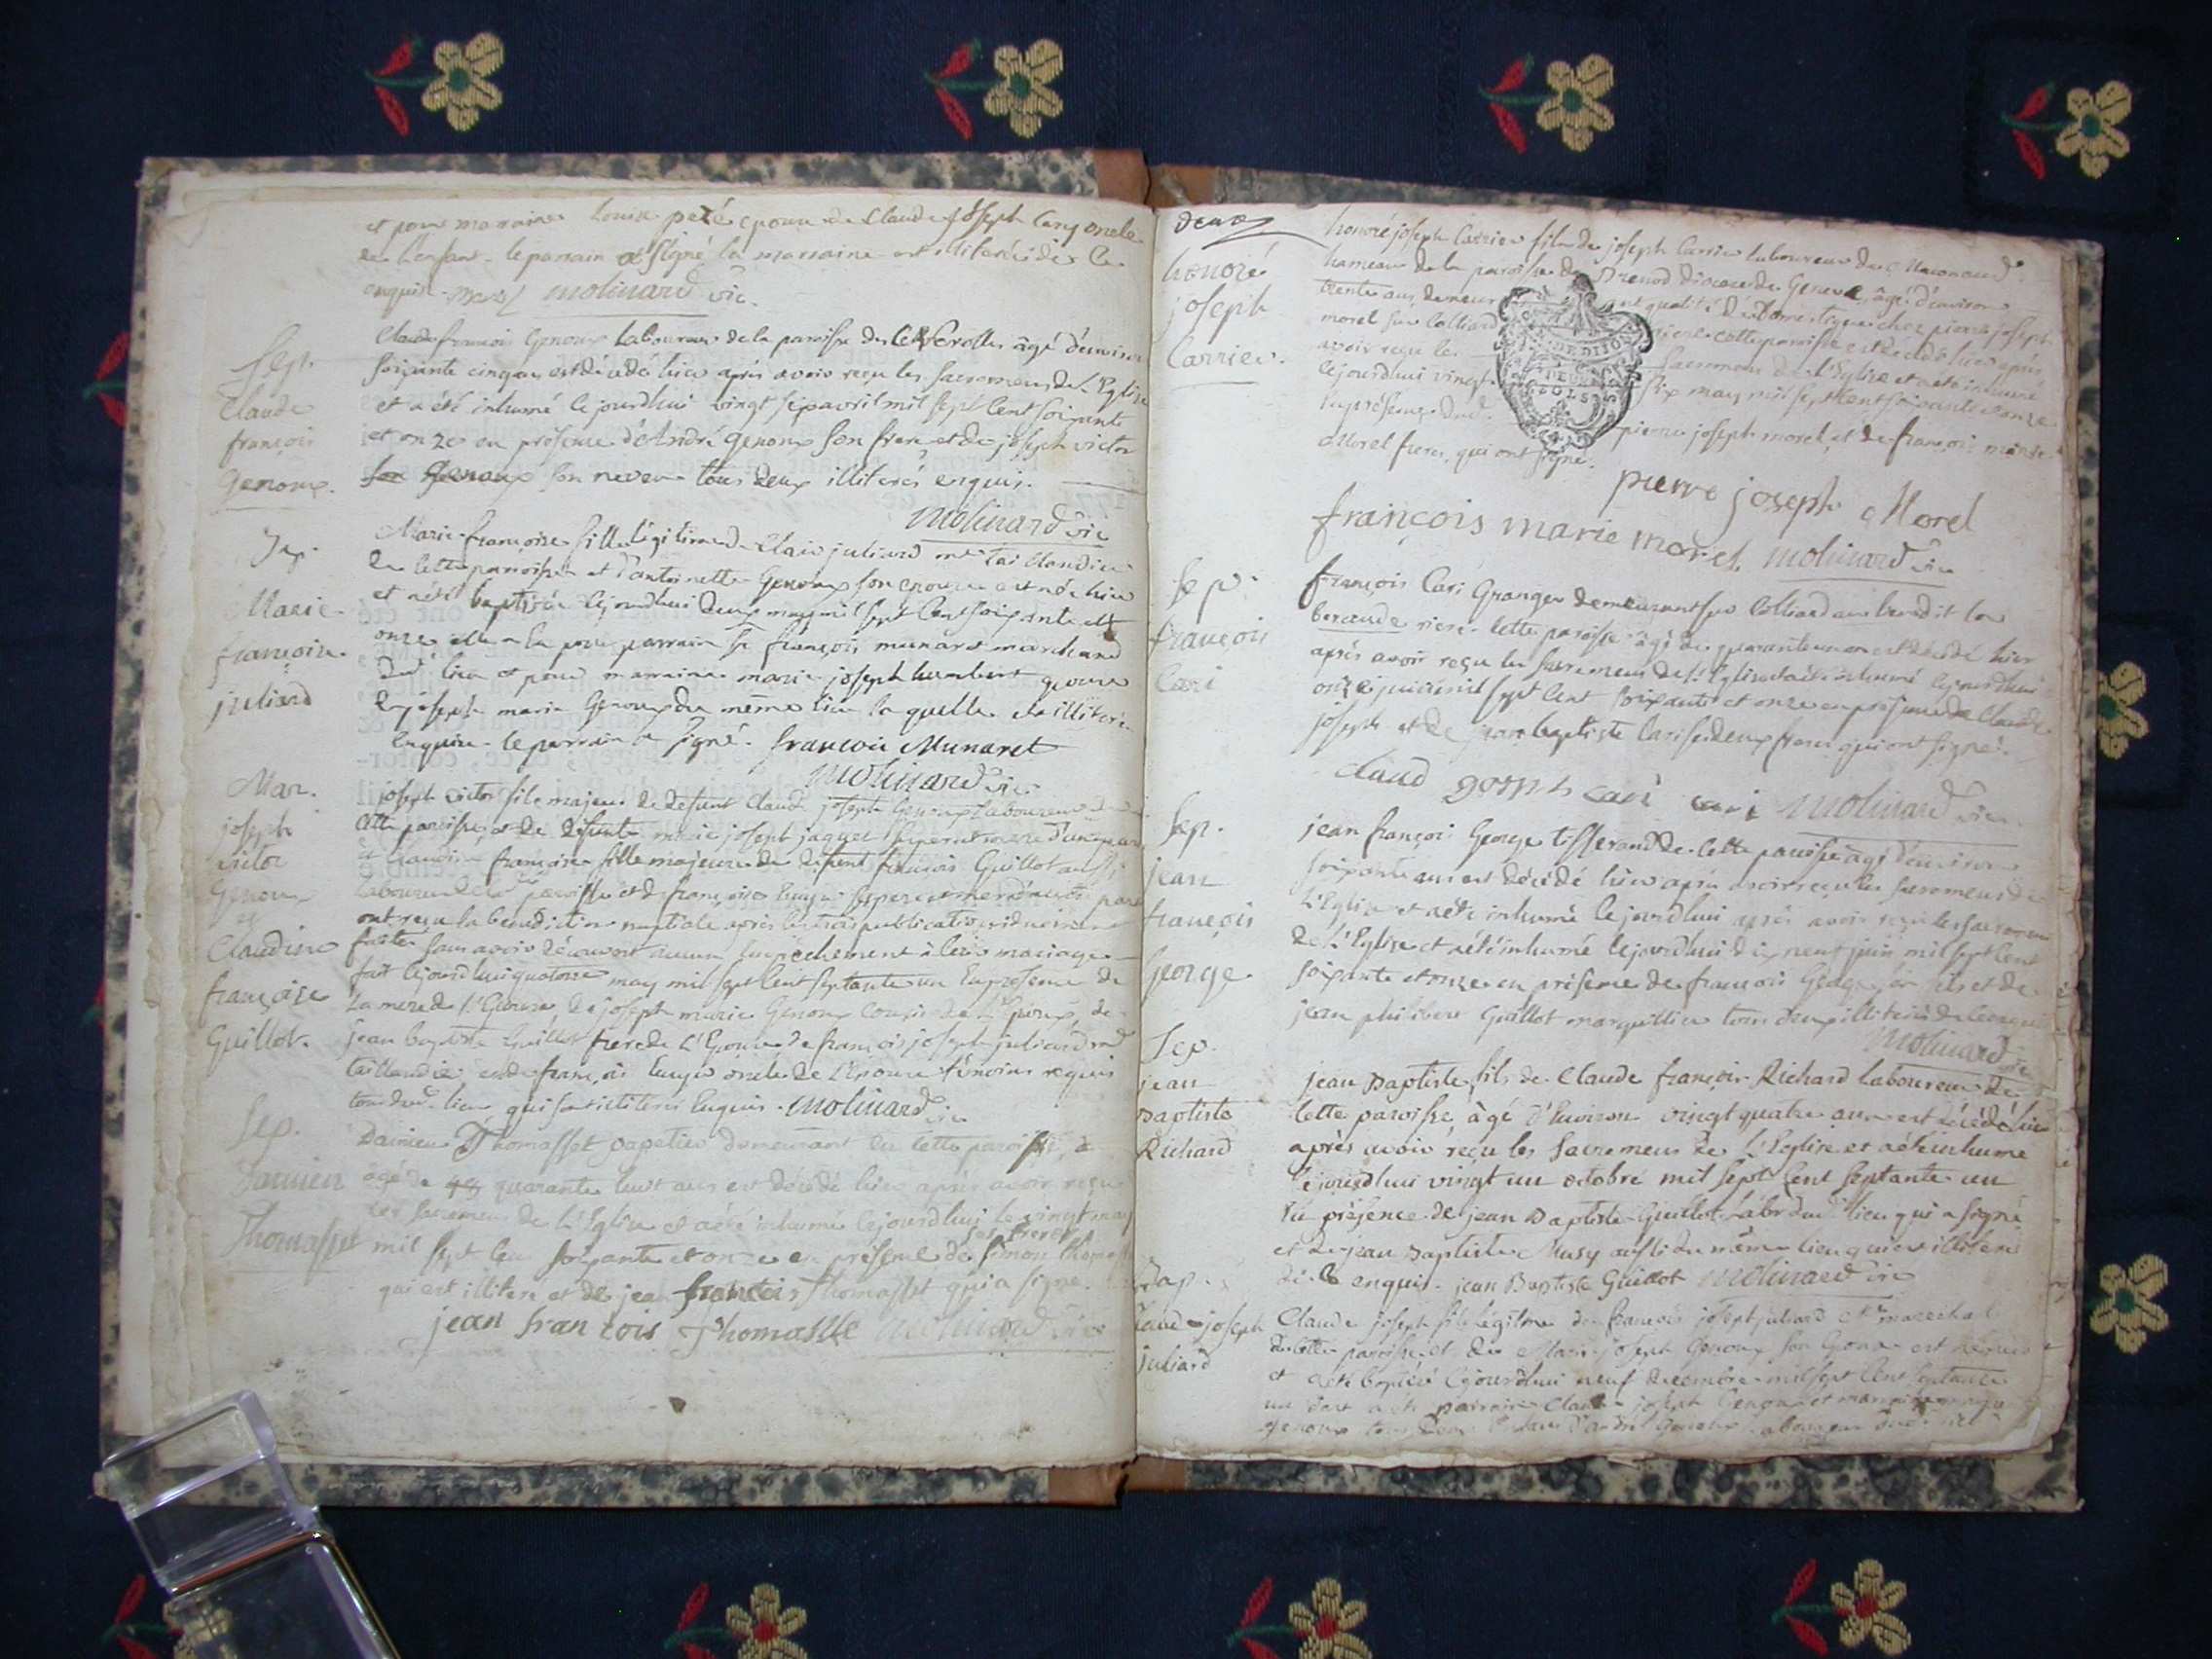 et pour marraine Louise peté epouse de Claude Joseph Cary oncle
de l'enfant. le parrain a signé la marraine est illiterée de ce
enquise. Molinard vic.
Sep.
Claude
françois
Genoux.
Claude françois Genoux Laboureur de la paroisse de agé d'environ
soixante cinq ans est décédé hier après avoir reçu les sacremens de L'Eglise
et a été inhumé ce jourdhui vingt sept avril mil sept cent soixante
et onze en présence d'André Genoux son frere et de joseph victor
son Genoux son neveu tous deux illiterés enquis.
Molinard vic
Marie
françoise
juliard
Marie françoise fille légitime de Claude juliard
de cette paroisse et d'antoinette Genoux son epouse est née hier
et a été baptisée ce jourdhui deux may mil sept cent soixante et
onze elle a eu pour parrain Sr françois munaret marchand
dud. lieu et pour marraine marie joseph humbert epouse
de joseph marie Genoux du même lieu laquelle est illiterée
enquise. le parrain a signé. francois Munaret
Molinard vic.
Mar.
joseph
victor
Genoux
et
Claudine
françoise
Guillot.
joseph victor fils majeur de defunt Claude joseph Genoux Laboureur de
cette paroisse, et de defunte marie joseph jaquet
et Claudine françoise fille majeure de defunt francois Guillot aussi
Laboureur de cette paroisse et de françoise
ont reçu la benediction nuptiale après les trois publications
faites sans avoir découvert aucun empechement à leur mariage
fait ce jourdhui quatorze may mil sept cent septante un en presence de
la mere de l'Epouse, de joseph marie Genoux cousin de l'Epoux, de
jean baptiste Guillot frere de L'Epouse de françois joseph juliard md
taillandier et de françois oncle de L'Epouse témoins requis
tous dud. lieu qui sont illiterés enquis. Molinard vic
Sep.
Damien
Thomasset
Damien Thomasset papetier demeurant en cette paroisse,
agé de quarante huit ans est décédé hier après avoir reçu
les sacremens de L'Eglise et a été inhumé ce jourdhui le vingt may
ses freres
mil sept cent soixante et onze en présence de Simon Thomasset
qui est illiteré et de jean francois Thomasset qui a signé.
jean francois Thomasset Molinard vic
deux
honoré
joseph
Carrier.
honoré joseph Carrier fils de joseph Carrier laboureur de
hameau de la paroisse de Brenod diocese de Geneve, agé d'environ
trente ans demeurant en qualité de domestique chez pierre joseph
morel sur Colliard riere cette paroisse est décédé hier après
avoir reçu les Sacremens de l'Eglise et a été inhumé
ce jourdhui vingt six may mil sept cent soixante et onze
en présence dud. pierre joseph morel et de françois marie
Morel freres, qui ont signé.
pierre joseph Morel
françois marie morel Molinard vic
Sep.
françois
Cari
françois Cari Granger demeurant sur Colliard au lieu dit la
beraude riere cette paroisse agé de quarante un an est décédé hier
après avoir reçu les sacremens de l'Eglise et a été inhumé ce jourdhui
onze juin mil sept cent soixante et onze en présence de Claude
joseph et de jean baptiste Cari ses deux freres qui ont signé.
claud goseph cari cari Molinard vic.
Sep.
jean
françois
George
jean françois George tisserand de cette paroisse agé d'environ
soixante ans est décédé hier après avoir reçu les sacremens de
L'Eglise et a été inhumé ce jourdhui après avoir reçu les sacremens
de L'Eglise et a été inhumé ce jourdhui dix neuf juin mil sept cent
soixante et onze en présence de françois George son fils et de
jean philibert Guillot marguillier tous deux illiterés de ce enquis
Molinard vic
Sep.
jean
Baptiste
Richard
jean Baptiste fils de Claude françois Richard Laboureur de
cette paroisse, agé d'Environ vingt quatre ans est décédé hier
après avoir reçu les sacremens de L'Eglise et a été inhumé
ce jourdhui vingt un octobre mil sept cent septante un
en présence de jean Baptiste Guillot Labr dud. lieu qui a signé
et de jean Baptiste Musy aussi du même lieu qui est illiteré
de ce enquis. jean Baptiste Guillot Molinard vic
Bap.
Claude joseph
juliard
Claude joseph fils légitime de françois joseph juliard Me marechal
de cette paroisse et de Marie joseph Genoux son Epouse est né
et a été baptisé ce jourdhui neuf decembre mil sept cent septante
un dont a été parrain Claude joseph Genoux et marraine
Genoux tous deux d'andré Genoux Laboureur dud. lieu